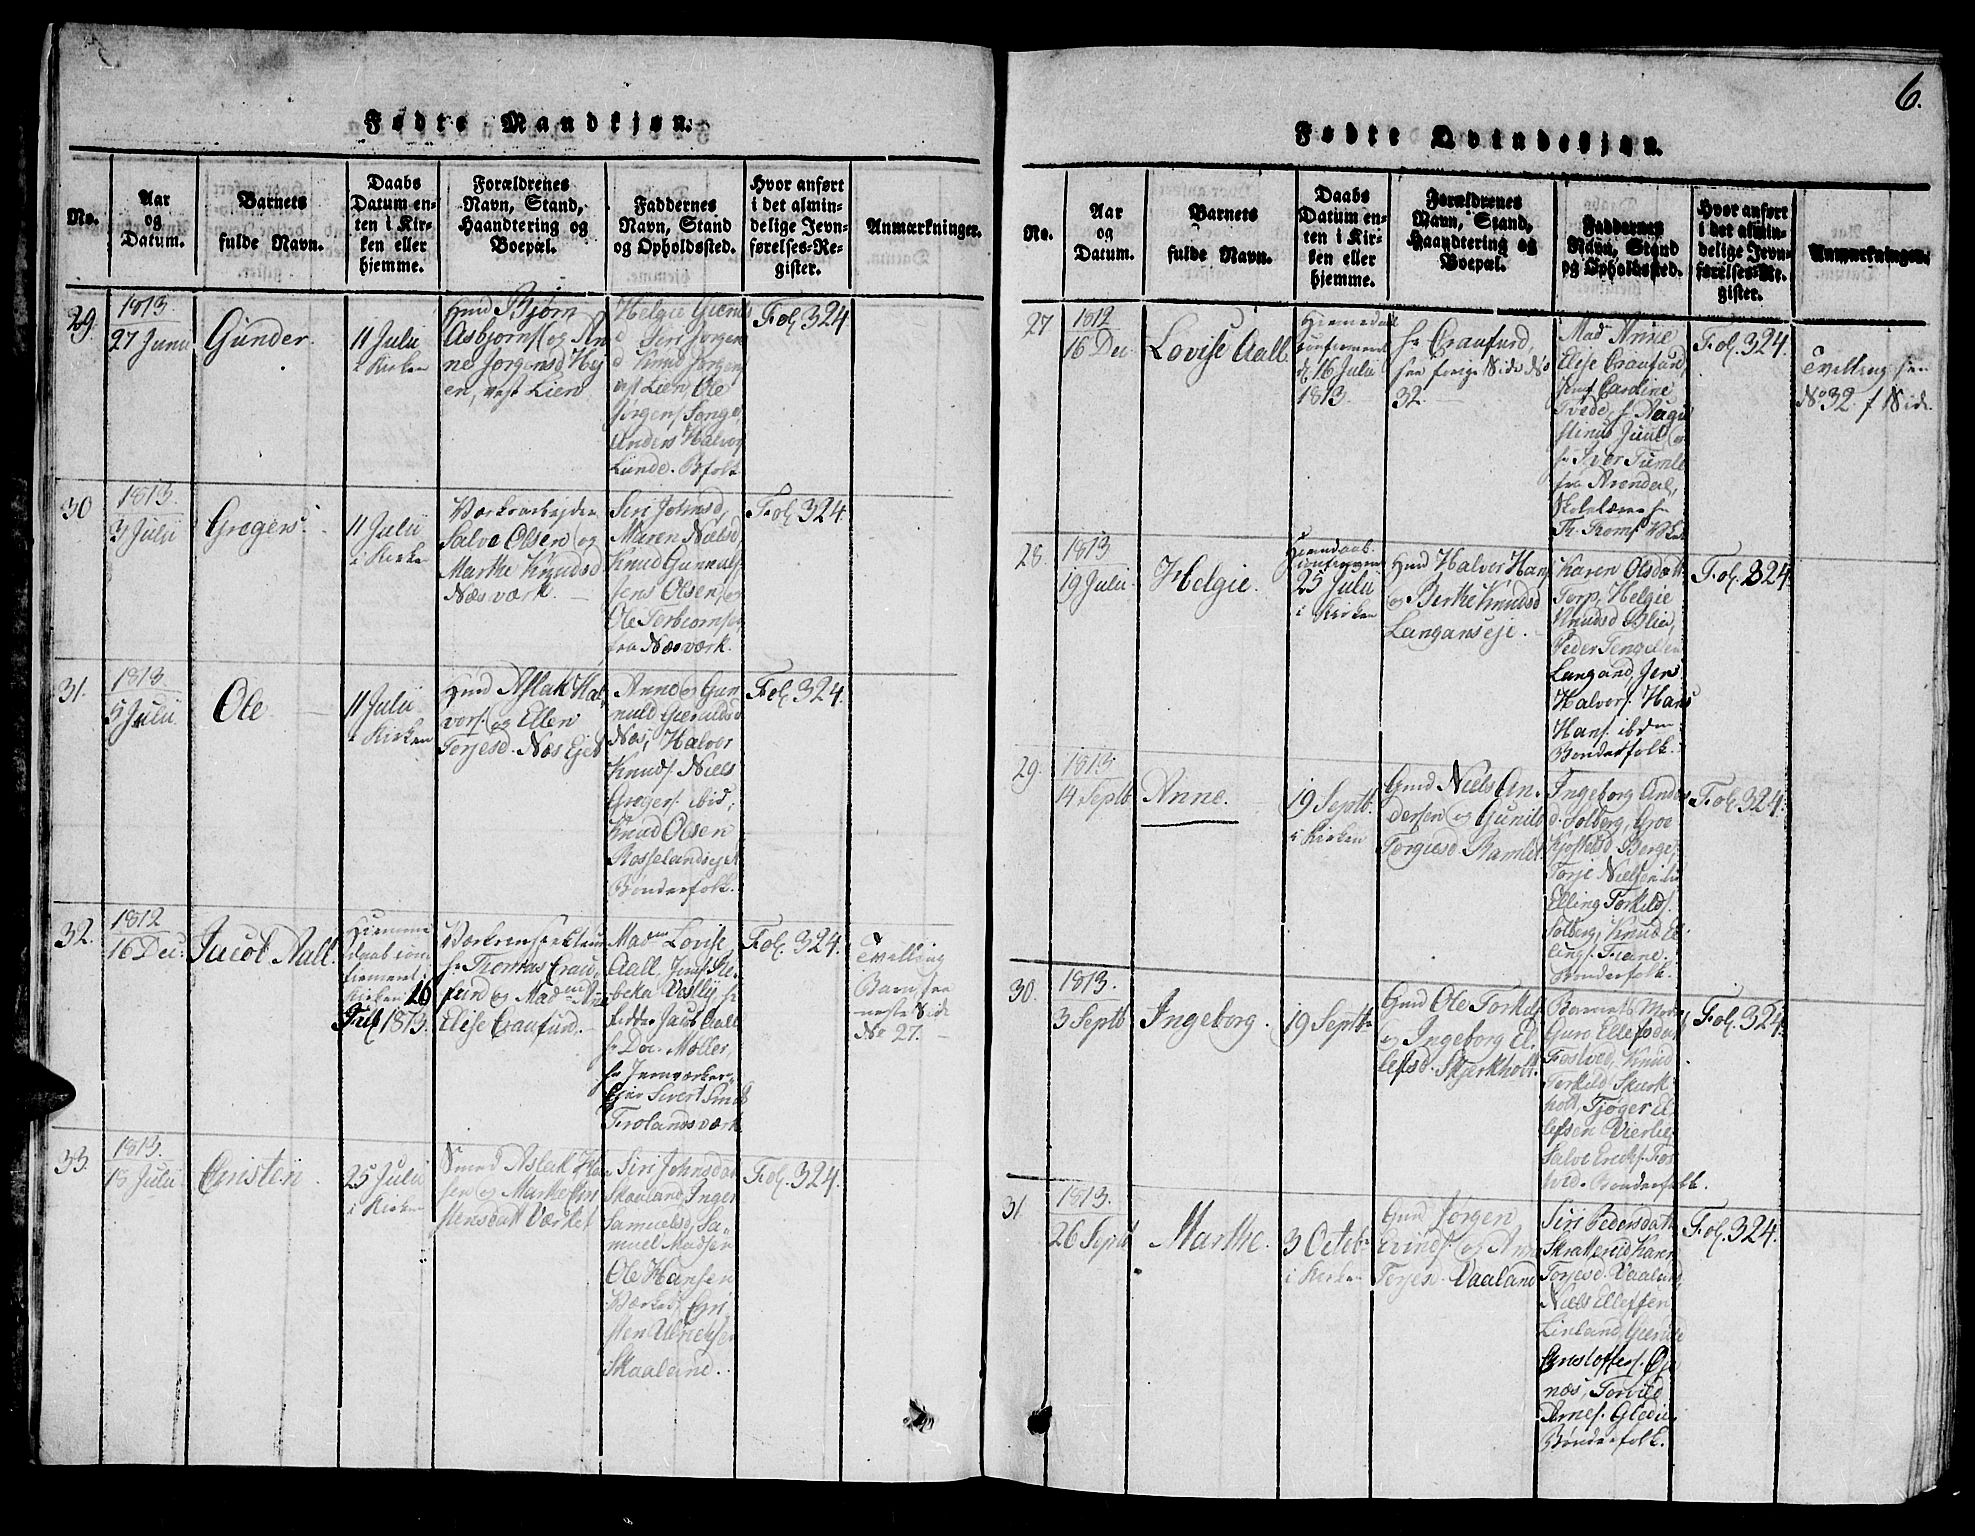 6.
Fødte Mandkjøn.
No.
Aar
og
Datum.
Barnets
fulde Navn.
Daabs
Datum en-
ten i Kir-
ken eller
hjemme.
Forældrenes
Navn, Stand,
Haandtering og
Boepæl.
Faddernes
Navn, Stand
og Opholdssted.
Hvor anført
i det almin-
delige Jevn-
førelses-Re-
gister.
Anmærkninger.
29.
1813.
27 Junii
Gunder.
11 Julii
i Kirken
Gmd Bjørn
Asbjørns. og An
ne Jørgensd
Lien
Helgie
d Siri Jørgen
d Knud Jørgens
Lien, Ole
Jørgens. Songe,
Anders Halvors
Lunde. Bfolk
Fol. 324
30
1813.
3 Julii
Gregers.
11 Julii
i Kirken
Værksarbeyder
Salve Olsen og
Marthe Knudsd
Næsværk.
Siri Johnsd,
Maren Nielsd,
Knud Gunnulf
Jens Olsen, og
Ole Torbiørns
fra Næsværk.
Fol. 324.
31.
1813.
5 Julii
Ole
11 Julii
i Kirken
Gmd Aslak Hal
vors. og Ellen
Torjesd. Næs Ejet
Anne og Gun
nuld
Næs, Halvor
Knuds. Niels
Gregers. ibid,
Knud Olsen
Rosselandsejet
Bønderfolk.
Fol. 324.
32.
1812
16 Dec.
Jacob Aall.
Hiemme
daab con
firmeret i
Kirken 16
Juli 1813.
Værksinspekteur
Hr Thomas Crau-
furd og Mad
Elise Craufurd.
Mad Lovise
Aall, Jomf. Re
beka Vesly, Hr
Jacob Aall
Hr Doc. Møller,
Hr Jernværks-
Ejer Sivert Smit
Frolandsværk
Fol. 324.
Tvilling
Barn see
næste Side
No 27.
33.
1813.
18 Julii
Christen
25 Julii
i Kirken
Smed Aslak Han
sen og Marthe Chri
stensdatt Værket
Siri Johnsdat
Skaaland, Inger
Samuelsd, Sa-
muel Madsen
Ole Hansen
Værket, Chri
sten Ulrichsen
Skaaland.
Fol. 324.
Fødte Qvindekjøn.
No.
Aar
og
Datum.
Barnets
fulde Navn.
Daabs
Datum en-
ten i Kir-
ken eller
hjemme.
Forældrenes
Navn, Stand,
Haandtering og
Boepæl.
Faddernes
Navn, Stand
og Opholdssted.
Hvor anført
i det almin-
delige Jevn-
førelses-Re-
gister.
Anmærkninger.
27
1812
16 Dec
Lovise Aall.
Hiemedaab
confirmeret
d. 16 Julii
1813.
Hr Craufurd,
see forige Side No
32.
Mad Anne
Elise Craufurd,
Jomf Cardine
Tvede, Hr Augu
stinus Juul og
Hr Iver Tumle
fra Arendal,
Skolelærer Hr
Th. Roms
Fol. 324.
Tvilling see
No 32 f Side.
28.
1813
19 Julii
Helgie.
Hiemdaab.
confirmeret
25 Julii
i Kirken
Gmd Halvor Hans
og Berthe Knudsd
Langangseje.
Karen Olsdatt
Torp, Helgie
Knudsd Blie,
Peder Tengelsen
Langand, Jens
Halvors. Hans
Hans. ibdm
Bønderfolk.
Fol. 324.
29.
1813.
14 Septb
Anne.
19 Septb.
i Kirken
Gmd Niels An-
dersen og Gunild
Torgiesd Ramlet
Ingeborg Anders
d. Solberg, Groe
Kjostelsd Berge,
Torje Nielsen ib
Elling Torkilds.
Solberg, Knud El
lings. Fiane.
Bønderfolk.
Fol. 324.
30.
1813.
3 Septb
Ingeborg.
19 Septb
Gmd Ole Torkels
og Ingeborg El-
lefsd. Skjærkholt.
Barnets Moder
Guro Ellefsdatt
Fostved, Knud
Torkild. Skiærk
holt, Tjøger El
lefsen Vierlie,
Salve Erichs. Fos
tved. Bønderfolk.
Fol. 324.
31
1813.
26 Septb
Marthe.
3 Octob
i Kirken
Gmd Jørgen
Evinds. og Anne
Torjesd. Vaaland
Siri Pedersdatt
Skrattereid, Karen
Torjesd. Vaaland,
Niels Ellefsen
Linland,
Christoffers.
næs, Torvild
Arnes. Gledie.
Bønderfolk.
Fol. 324.